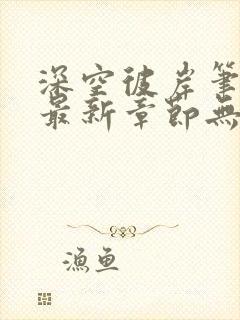 深空彼岸筆
最新章節無
漁魚